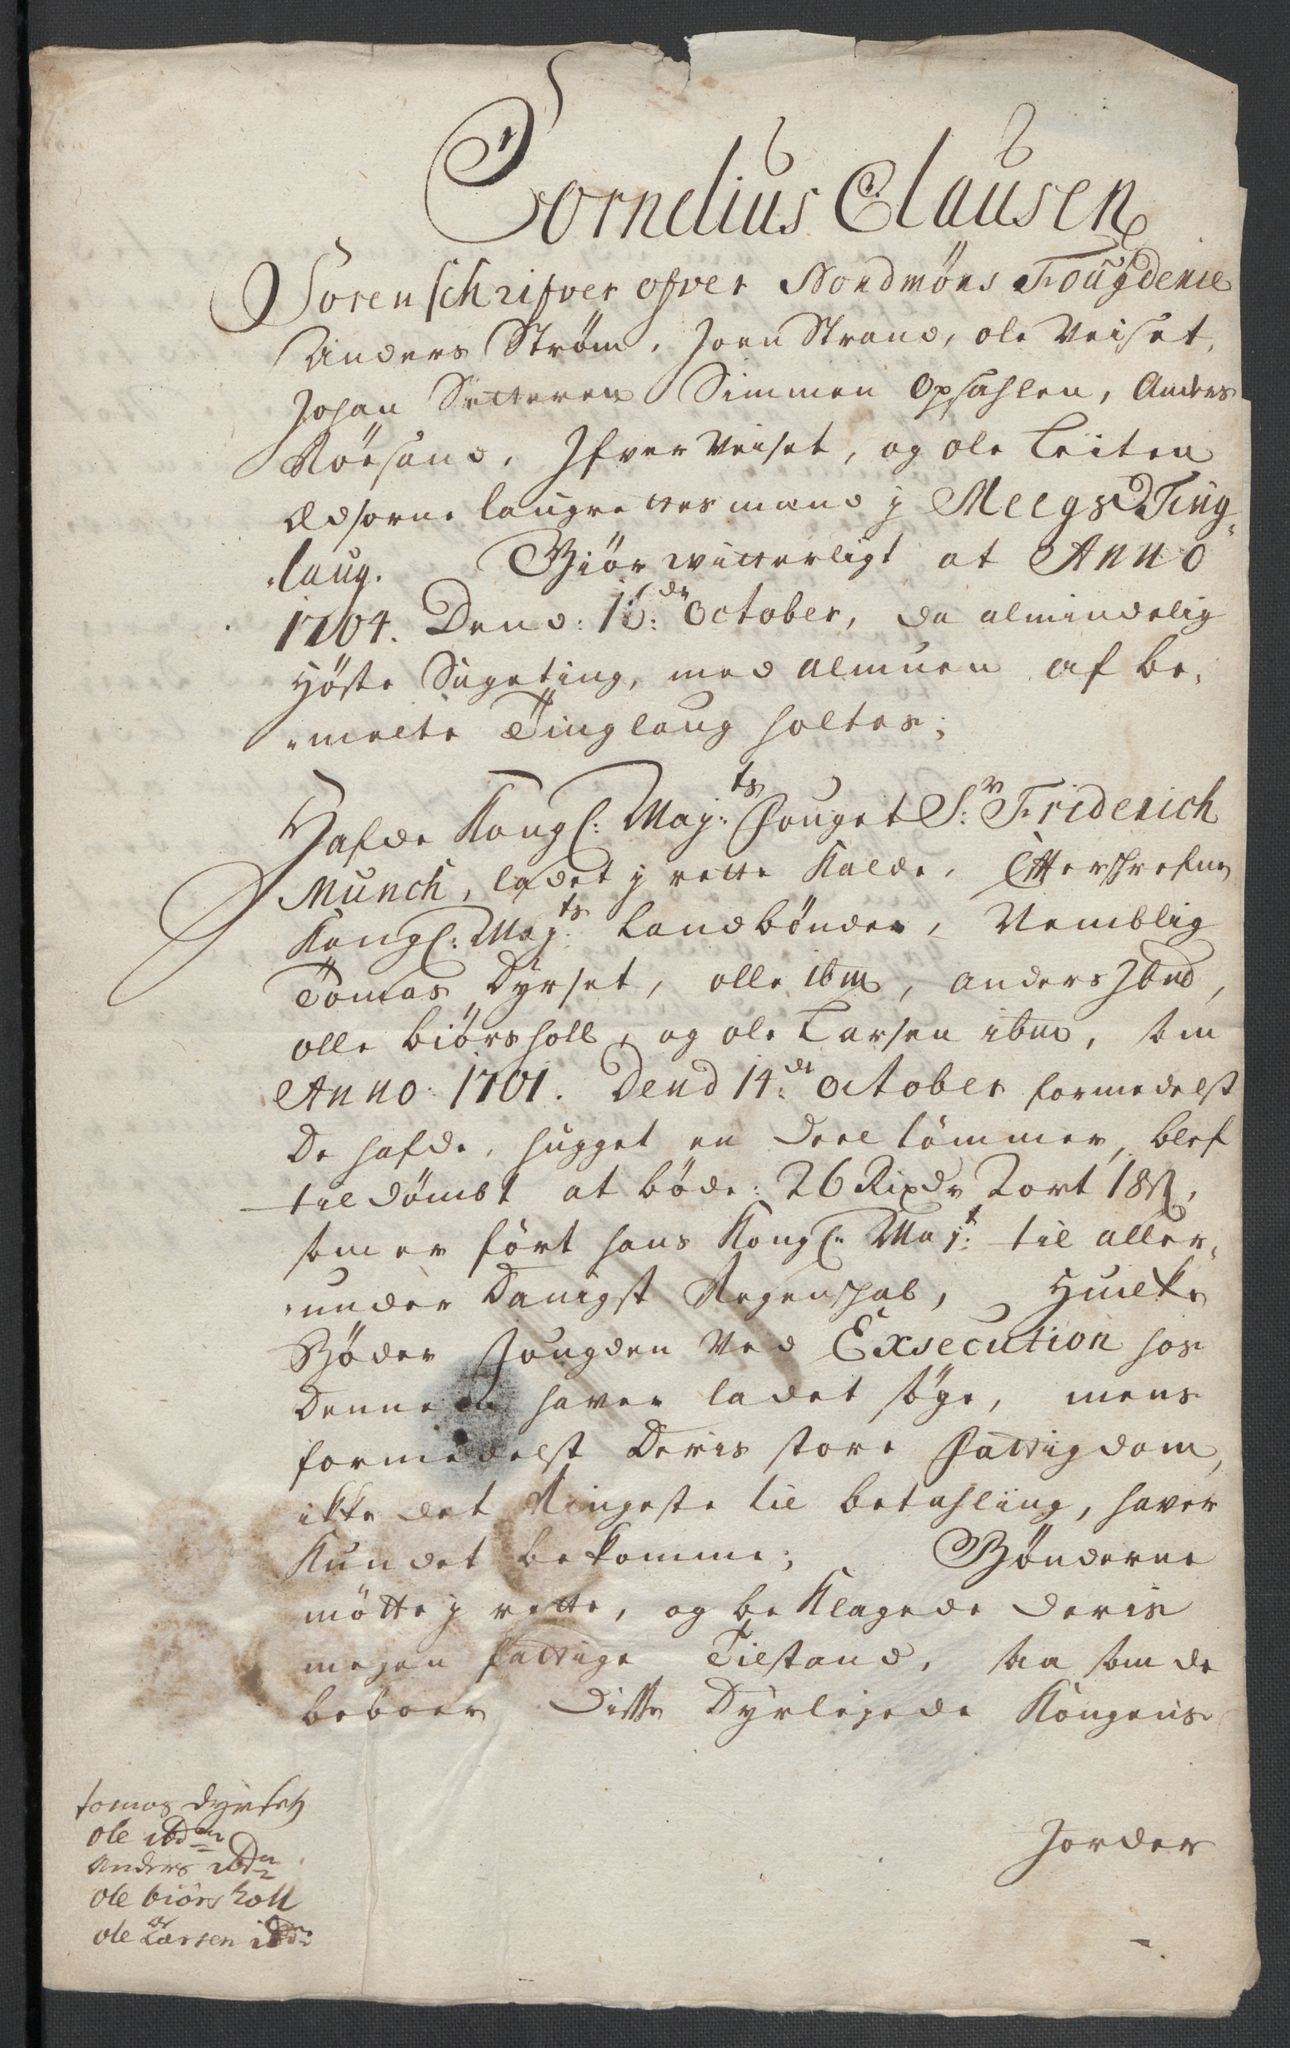 Cornelius Clausen
Sorenschrifver ofver Nordmørs Fougderie
Anders Strøm, Joen Strand, ole Veiset,
Johan Setteren Simmen Opsahlen, Anders
Røesand, Ifver Veiset, og ole Leiten
Edsorne laugrettesmænd j Meegs Ting¬
laug. Giør witterligt at Anno
1704. Dend: October, da almindelig
Høste Sageting, med Almuen af be¬
melte Tinglaug holtes;
Hafde Kongl: Maj:ts Fouget Sr: Friderich
Munch, ladet j rette Kalde, Efterskrefne
Kongl: Maj:ts Landbønder, Nemblig
Tomas Dyrset, olle ibm, anders Ibnd,
olle biørsholl, og ole Larsen ibm, som
Anno 1701. Dend 14:de October formedelst
De hafde, hugget en deel tømmer, blef
tildømbt at bøde: 26 Rixdr 2 ort 18 s,
som er ført hans Kongl: Maj:t til aller¬
underdanigst Regenskab, Huilke
Bøder Fougden Ved Exsecution hos
Dennem haver ladet søge, mens
formedelst Deris store Fattigdom,
ikke det Ringeste til betahling, haver
Kundet bekomme; Bønderne
møtte j rette, og beklagede deris
megen fattige Tilstand, saa som de
beboer Disse Dyrlejede Kongens
Jorder
tomas dyrset
ole ibdm
Anders ibdm
ole biørsholl
ole Larsen ibdm